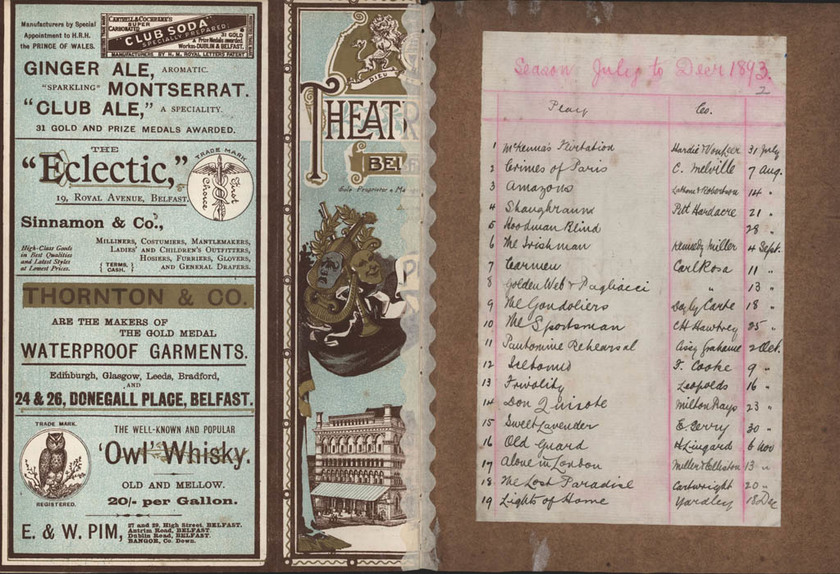 Manufacturers by Special
Appointment to H.R.H.
the PRINCE OF WALES.
CANTRELL & COCHRANE'S
SUPER
CARBONATED
CLUB SODA
SPECIALLY PREPARED.
31 GOLD
& Prize Medals awarded.
Works-DUBLIN & BELFAST.
MANUFACTURERS BY H. M. ROYAL LETTERS PATENT
GINGER ALE, AROMATIC.
"SPARKLING" MONTSERRAT.
"CLUB ALE," A SPECIALITY.
31 GOLD AND PRIZE MEDALS AWARDED.
THE
"Eclectic,"
19, ROYAL AVENUE, BELFAST.
TRADE MARK
First Choice
Sinnamon & Co.,
High-Class Goods
in Best Qualities
and Latest Styles
at Lowest Prices.
TERMS, CASH.
MILLINERS, COSTUMIERS, MANTLEMAKERS,
LADIES' AND CHILDREN'S OUTFITTERS,
HOSIERS, FURRIERS, GLOVERS,
AND GENERAL DRAPERS.
THORNTON & CO.
ARE THE MAKERS OF
THE GOLD MEDAL
WATERPROOF GARMENTS.
Edinburgh, Glasgow, Leeds, Bradford,
AND
24 & 26, DONEGALL PLACE, BELFAST.
TRADE MARK.
REGISTERED.
THE WELL-KNOWN AND POPULAR
'Owl' Whisky.
OLD AND MELLOW.
20/- per Gallon.
E. & W. PIM,
27 and 29, High Street, BELFAST.
Antrim Road, BELFAST.
Dublin Road, BELFAST.
BANGOR, Co. Down.
DIEU
THEATR
BEL
Sole Proprietor & Ma
Season July to Decr 1893.
2
Play Co.
1 McKenna's Flirtation Hardie & Von Leer 31 July
2 Crimes of Paris C. Melville 7 Aug.
3 Amazons 14 "
4 Shaughraun Pitt Hardacre 21 "
5 Hoodman Blind 28 "
6 The Irishman Kennedy Miller 4 Sept.
7 Carmen Carl Rosa 11 "
8 Golden Web & Pagliacci " 13 "
9 The Gondoliers D'oyly Carte 18 "
10 The Sportsman CH Hawtrey 25 "
11 Pantomime Rehearsal Cissy Grahame 2 Oct.
12 F. Cooke 9 "
13 Frivolity Leopolds 16 "
14 Don Quixote Milton Rays 23 "
15 Sweet Lavender E. Terry 30 "
16 Old Guard H Lingard 6 Nov
17 Alone in London Miller & Elliston 13 "
18 The Lost Paradise Cartwright 20 "
19 Lights of Home Yardley 18 Dec